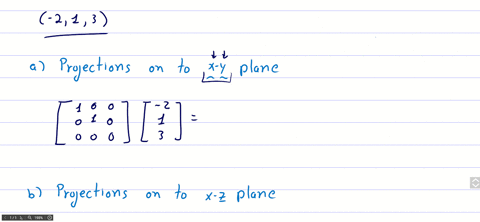 (-2, 1, 3)
a) Projections on to x-y plane
[1 0 0 [-2
0 1 0 1 =
0 0 0] 3]
b) Projections on to x-z plane